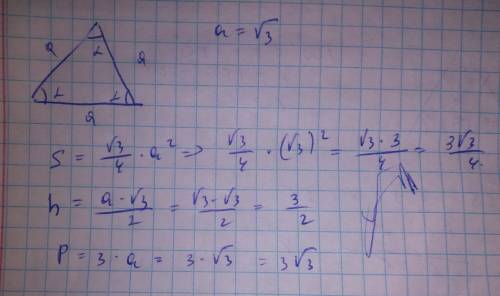 a = √3
a a
α
α α
a
S = √3/4 · a² => √3/4 · (√3)² = √3 · 3/4 = 3√3/4
h = a · √3/2 = √3 · √3/2 = 3/2
P = 3 · a = 3 · √3 = 3√3